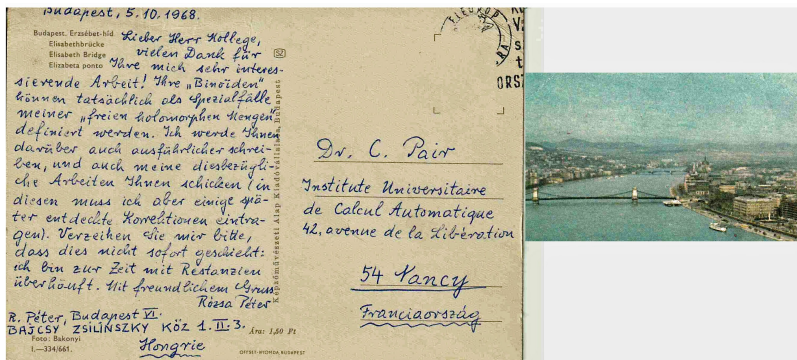 Budapest, 5. 10. 1968.
Budapest. Erzsébet-híd.
Elisabethbrücke
Elisabeth Bridge
Elizabeta ponto
Lieber Herr Kollege,
vielen Dank für
Ihre mich sehr interes-
sierende Arbeit! Ihre „Binoïden"
können tatsächlich als Spezialfälle
meiner „freien holomorphen Mengen"
definiert werden. Ich werde Ihnen
darüber auch ausführlicher schrei-
ben, und auch meine diesbezügli-
che Arbeiten Ihnen schicken (in
diesen muss ich aber einige spä-
ter entdeckte Korrektionen eintra-
gen). Verzeihen Sie mir bitte,
dass dies nicht sofort geschieht:
ich bin zur Zeit mit Restanzien
überhäuft. Mit freundlichem Gruss
Rózsa Péter
R. Péter, Budapest VI.
BAJCSY ZSILINSZKY KÖZ 1. II. 3.
Hongrie
Foto: Bakonyi
I.—334/661.
Ára: 1,50 Ft
OFFSET-NYOMDA BUDAPEST
Képzőművészeti Alap Kiadóvállalata, Budapest
ORSZ
Dr. C. Pair
Institute Universitaire
de Calcul Automatique
42, avenue de la Libération
54 Nancy
Franciaország